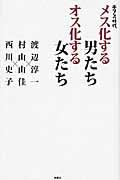 メス化する
男たち
オス化する
女たち
渡辺淳一
×
村山由佳
×
西川史子